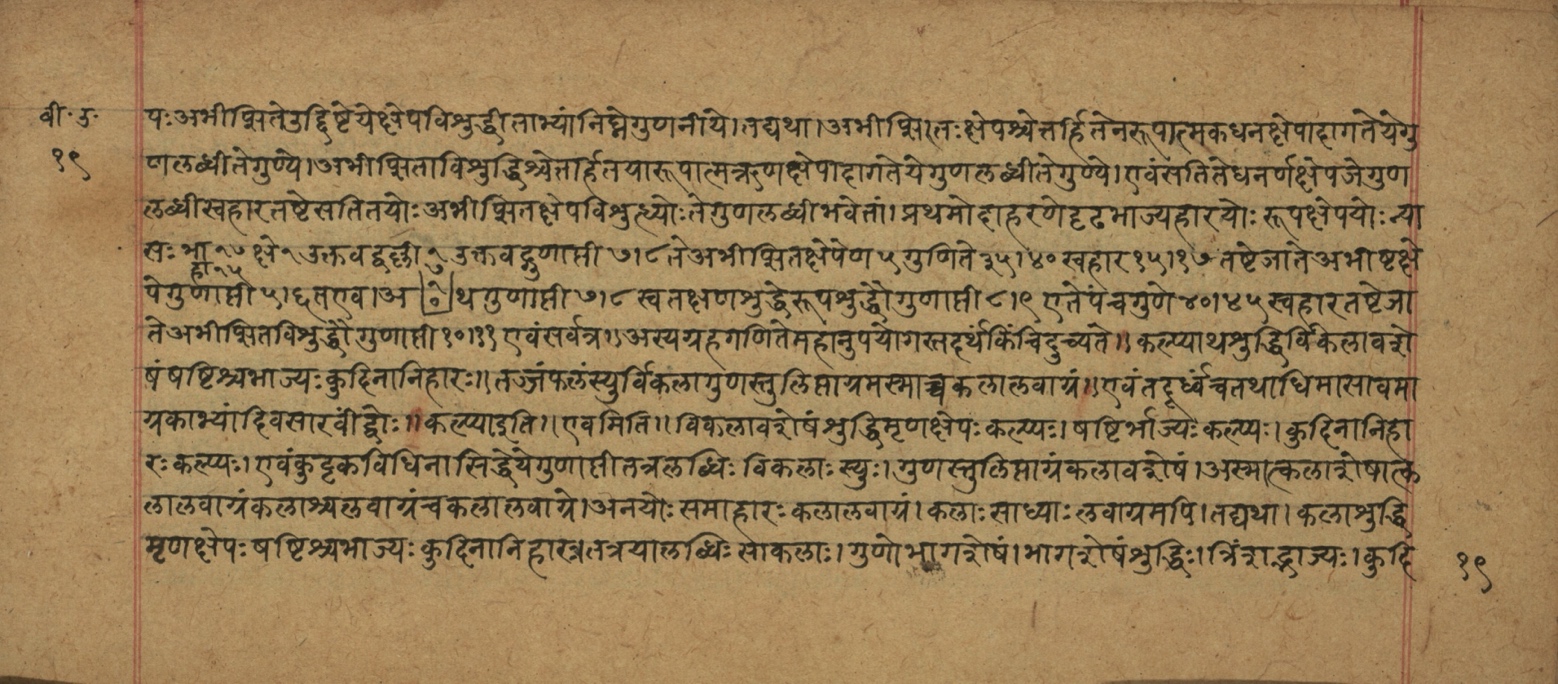 बी॰ उ॰ पः अभीप्सिते उद्दिष्टे ये क्षेपविशुद्धी ताभ्यां निघ्ने गुणनीये। तद्यथा। अभीप्सितः क्षेपश्चेत्तर्हि तेन रूपात्मकधनक्षेपादागते ये गु
१९ णलब्धी ते गुण्ये। अभीप्सिता विशुद्धिश्चेत्तर्हि तया रूपात्मऋणक्षेपादागते ये गुणलब्धी ते गुण्ये। एवं सति ते धनर्णक्षेपजे गुण
लब्धी स्वहारतष्टे सति तयोः अभीप्सितक्षेपविशुत्ध्योः ते गुणलब्धी भवेतां। प्रथमोदाहरणे दृढभाज्यहारयोः रूपक्षेपयोः न्या
सः भा १७ क्षे १ उक्तवद्वल्ली उक्तवद्गुणाप्ती ७।८ ते अभीप्सितक्षेपेण ५ गुणिते ३५।४० स्वहार १५।१७ तष्टे जाते अभीष्टक्षे
हा १५
पे गुणाप्ती ५।६ त एव। अथ गुणाप्ती ७।८ स्वतक्षणशुद्धे रूपशुद्धौ गुणाप्ती ८।९ एते पंचगुणे ४०।४५ स्वहारतष्टे जा
ते अभीप्सितविशुद्धौ गुणाप्ती १०।११ एवं सर्वत्र॥ अस्य ग्रहगणिते महानुपयोगस्तदर्थं किंचिदुच्यते॥ कल्प्याथ शुद्धिर्विकलावशे
षं षष्टिश्च भाज्यः कुदिनानि हारः॥ तज्जं फलं स्युर्विकला गुणस्तु लिप्ताग्रमस्माच्च कलालवाग्रं॥ एवं तदूर्ध्वं च तथाधिमासावमा
ग्रकाभ्यां दिवसा रवींद्वोः॥ कल्प्या इति॥ एवमिति॥ विकलावशेषं शुद्धिमृणक्षेपः कल्प्यः। षष्टिर्भाज्यः कल्प्यः। कुदिनानि हा
रः कल्प्यः। एवं कुट्टकविधिना सिद्धे ये गुणाप्ती तत्र लब्धिः विकलाः स्युः। गुणस्तु लिप्ताग्रं कलावशेषं। अस्मात्कलाशेषात्क
लालवाग्रं कलाश्च लवाग्रं च कलालवाग्रे। अनयोः समाहारः कलालवाग्रं। कलाः साध्याः लवाग्रमपि। तद्यथा। कलाशुद्धि
मृणक्षेपः षष्टिश्च भाज्यः कुदिनानि हारस्तत्र या लब्धिः सा कलाः। गुणो भागशेषं। भागशेषं शुद्धिः। त्रिंशद्भाज्यः। कुदि
१९